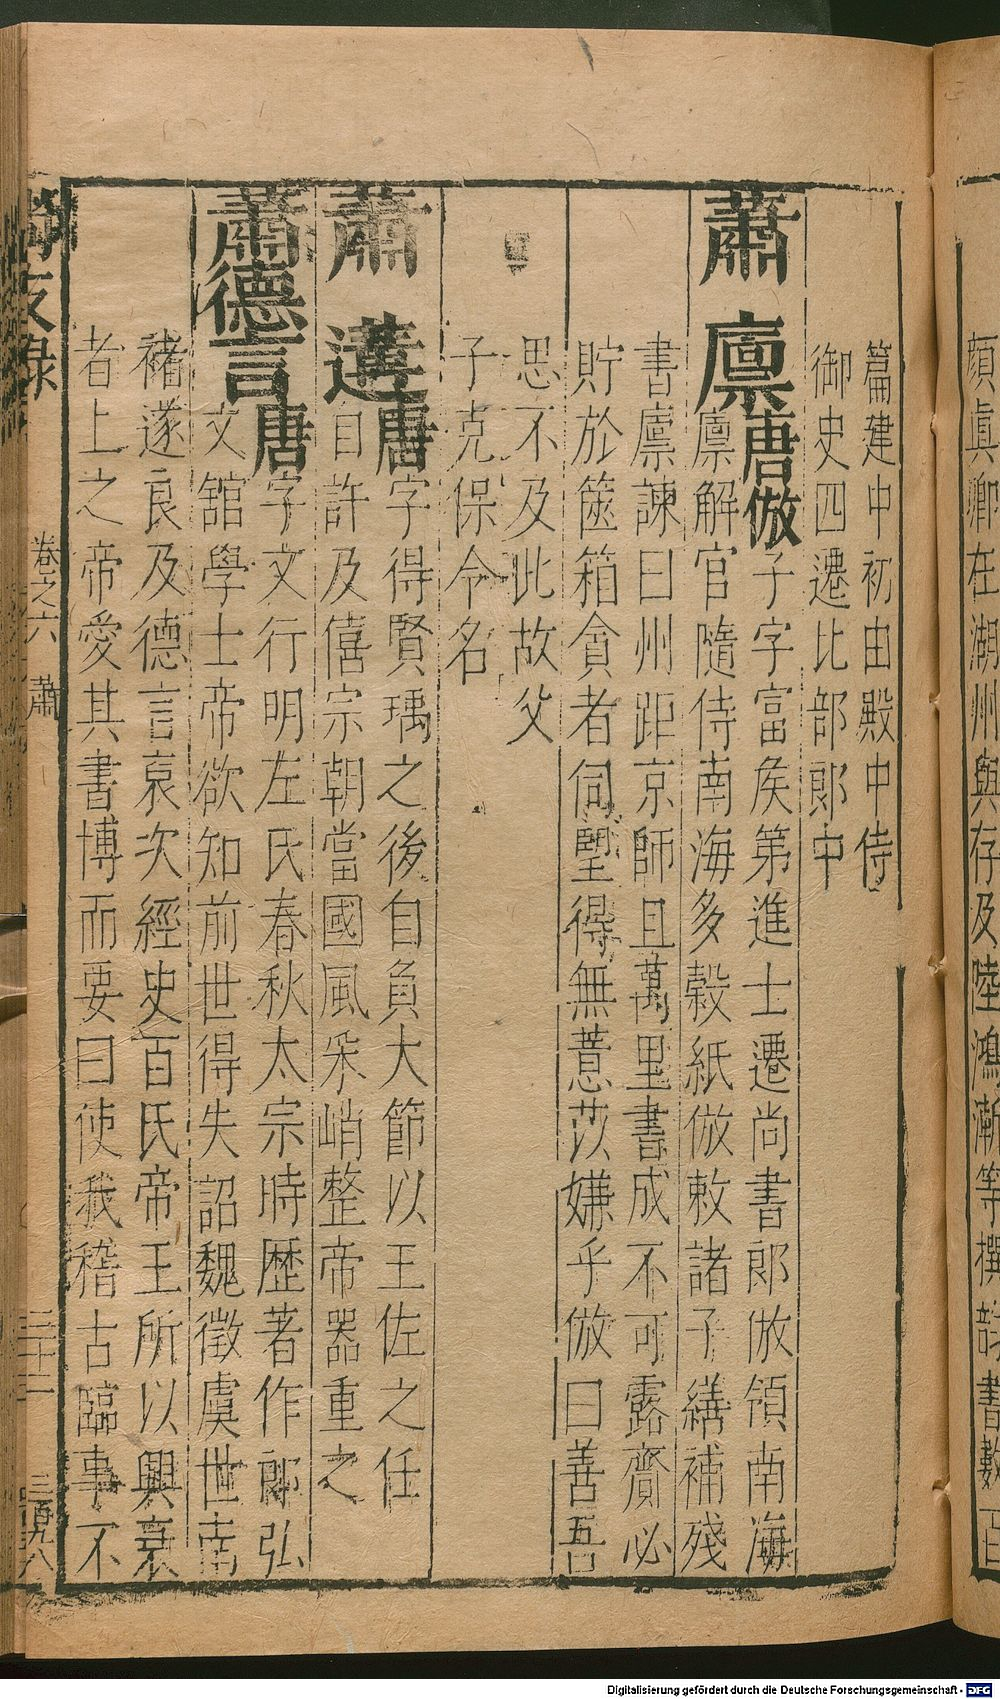 顏眞卿在湖州與存及陸鴻漸等撰韻書數百
篇建中初由殿中侍
御史四遷比部郎中
蕭廩唐倣子字富侯第進士遷尚書郎倣領南海
廩解官隨侍南海多榖紙倣敕諸子繕補殘
書廩諫曰州距京師且萬里書成不可露齎必
貯於篋箱貪者伺望得無薏苡嫌乎倣曰善吾
思不及此故父
子克保令名
蕭遘唐字得賢瑀之後自負大節以王佐之任
自許及僖宗朝當國風采峭整帝器重之
蕭德言唐字文行明左氏春秋太宗時歷著作郎弘
文舘學士帝欲知前世得失詔魏徵虞世南
褚遂良及德言裒次經史百氏帝王所以興衰
者上之帝愛其書博而要曰使我稽古臨事不
尚友錄 卷之六 蕭 二十二 三百九八
Digitalisierung gefördert durch die Deutsche Forschungsgemeinschaft - DFG